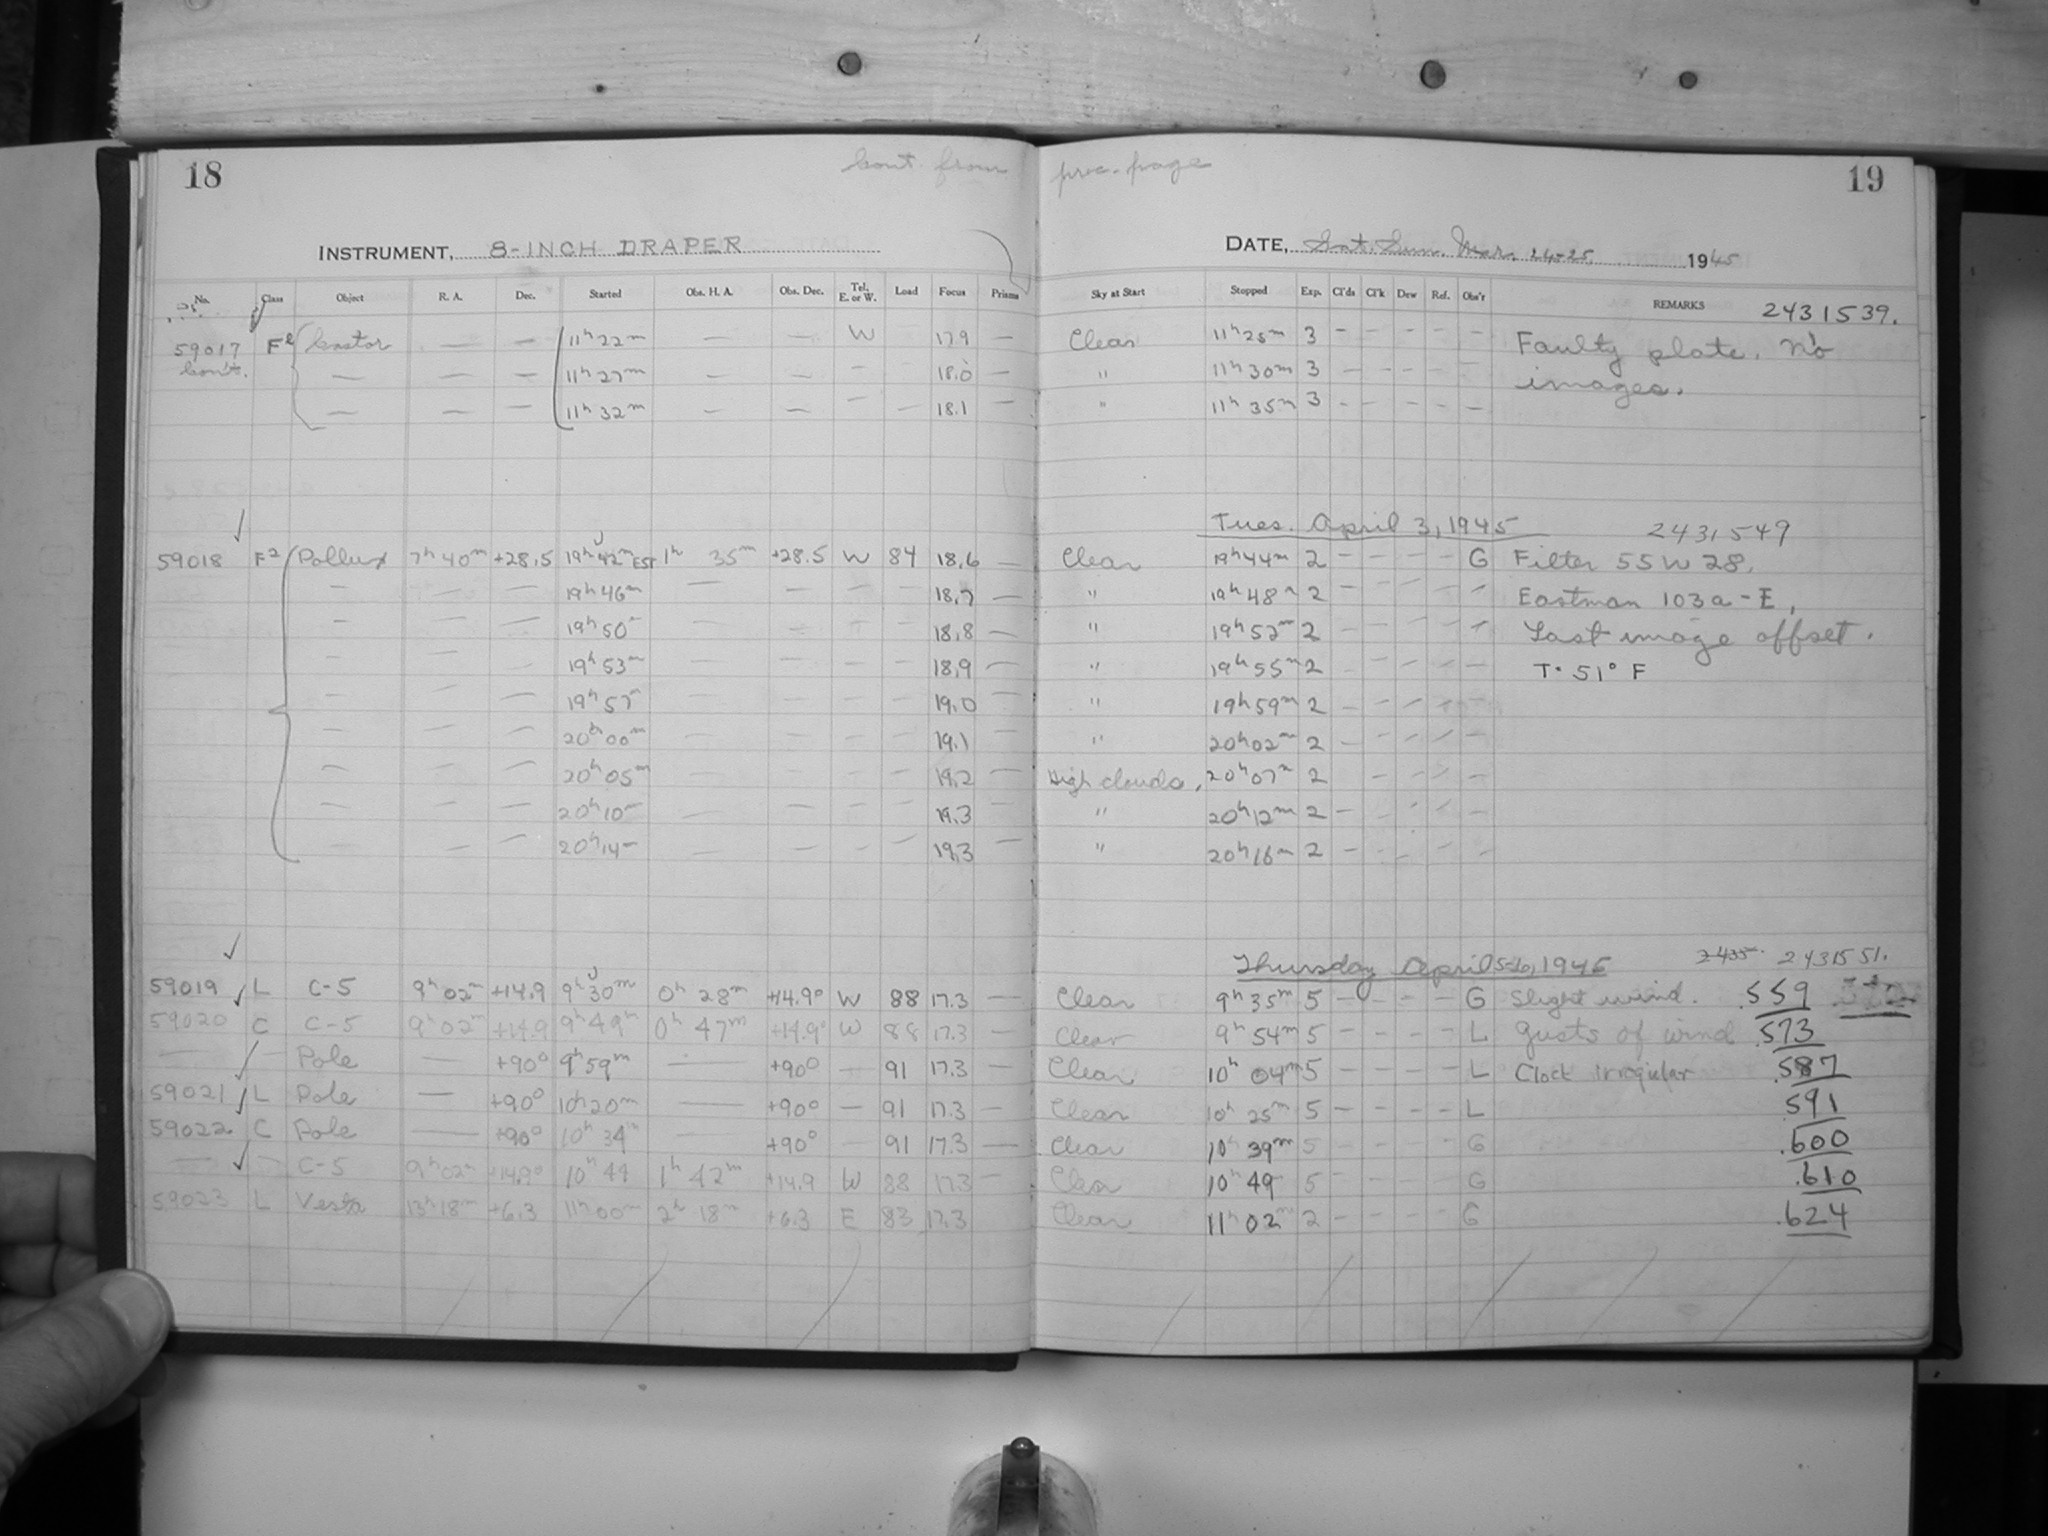 18 Cont. from prec. page 19
INSTRUMENT, 8-INCH DRAPER DATE, Sat. Sun. Mar. 24-25 1945
No. Class Object R. A. Dec. Started Obs. H. A. Obs. Dec. Tel. E. or W. Load Focus Prisms Sky at Start Stopped Exp. Cl'ds Cl'k Dew Ref. Obs'r REMARKS 2431539.
59017 F2 Castor — — 11h 22m — — W 17.9 — Clear 11h 25m 3 — — — — — Faulty plate. No
Cont. — — — 11h 27m — — — 18.0 — " 11h 30m 3 — — — — — images.
— — — 11h 32m — — — — 18.1 — " 11h 35m 3 — — — — —
Tues. April 3, 1945 2431549
59018 F2 Pollux 7h 40m +28.5 19h 42m EST 1h 35m +28.5 W 84 18.6 — Clear 19h 44m 2 — — — — G Filter 55W28,
— — — 19h 46m — — — — 18.7 — " 19h 48m 2 — — — — " Eastman 103a-E,
— — — 19h 50m — — — — 18.8 — " 19h 52m 2 — — — — " Last image offset.
— — — 19h 53m — — — — 18.9 — " 19h 55m 2 — — — — — T. 51° F
— — — 19h 57m — — — — 19.0 — " 19h 59m 2 — — — — —
— — — 20h 00m — — — — 19.1 — " 20h 02m 2 — — — — —
— — — 20h 05m — — — — 19.2 — High clouds, 20h 07m 2 — — — —
— — — 20h 10m — — — — 19.3 — " 20h 12m 2 — — — —
— — — 20h 14m — — — — 19.3 — " 20h 16m 2 — — — — —
Thursday April 5-6, 1945 2435 2431551.
59019 L C-5 9h 02m +14.9 9h 30m 0h 28m +14.9° W 88 17.3 — Clear 9h 35m 5 — — — — G Slight wind. .559
59020 C C-5 9h 02m +14.9 9h 49m 0h 47m +14.9° W 88 17.3 — Clear 9h 54m 5 — — — — L gusts of wind .573
— — Pole — +90° 9h 59m — +90° — 91 17.3 — Clear 10h 04m 5 — — — — L Clock irregular .587
59021 L Pole — +90° 10h 20m — +90° — 91 17.3 — Clear 10h 25m 5 — — — — L .591
59022 C Pole — +90° 10h 34m — +90° — 91 17.3 — Clear 10h 39m 5 — — — — G .600
— — C-5 9h 02m +14.9° 10h 44 1h 42m +14.9 W 88 17.3 — Clear 10h 49 5 — — — — G .610
59023 L Vesta 13h 18m +6.3 11h 00m 2h 18m +6.3 E 83 17.3 Clear 11h 02m 2 — — — — G .624